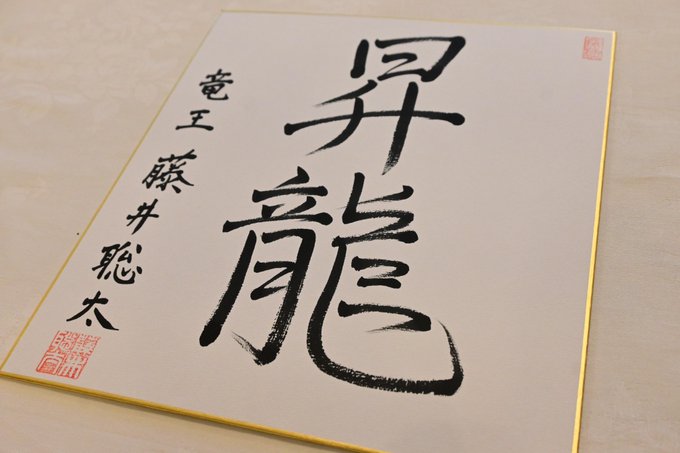 昇龍
竜王 藤井聡太